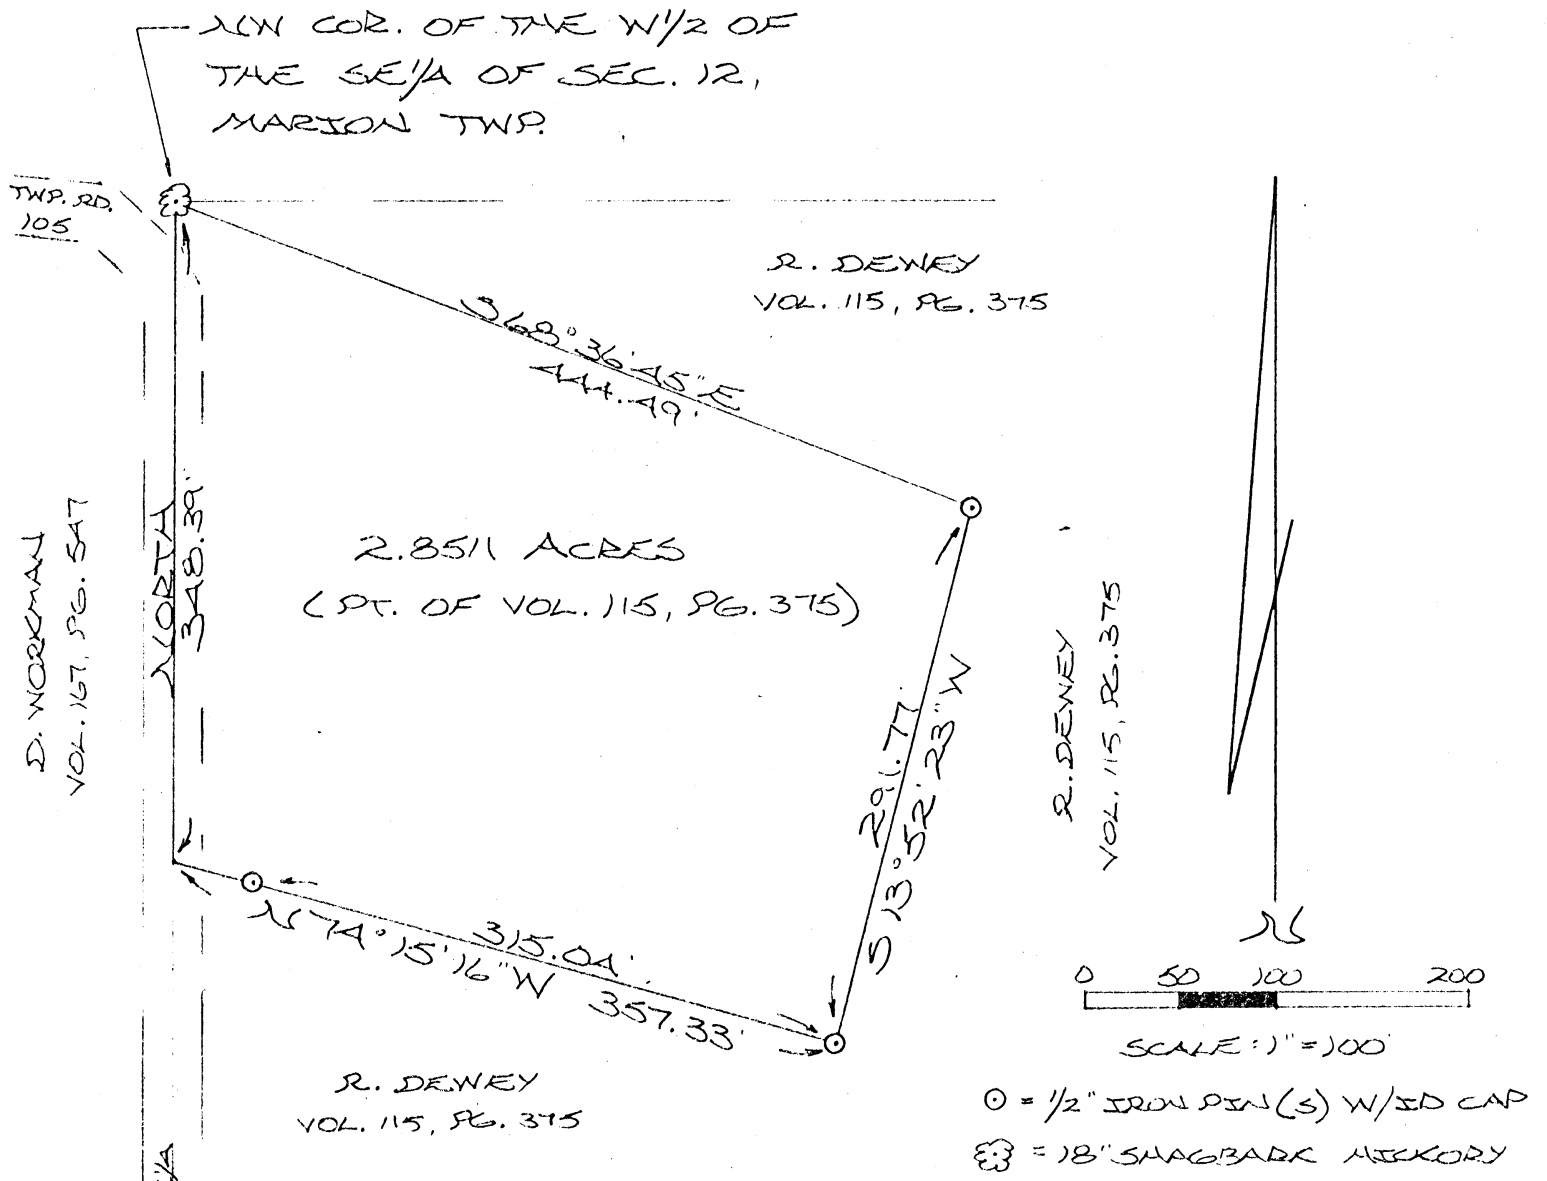 NW COR. OF THE W1/2 OF
THE SE1/4 OF SEC. 12,
MARION TWP.
TWP. RD.
105
R. DEWEY
VOL. 115, PG. 375
S68°36'45"E
444.49'
D. WORKMAN
VOL. 167, PG. 547
NORTH
348.39'
2.8511 ACRES
(PT. OF VOL. 115, PG. 375)
291.77'
S 13°52'23"W
R. DEWEY
VOL. 115, PG. 375
315.04'
N 74°15'16"W
357.33'
R. DEWEY
VOL. 115, PG. 375
N
0 50 100 200
SCALE: 1"=100'
= 1/2" IRON PIN(S) W/ID CAP
= 18" SHAGBARK HICKORY